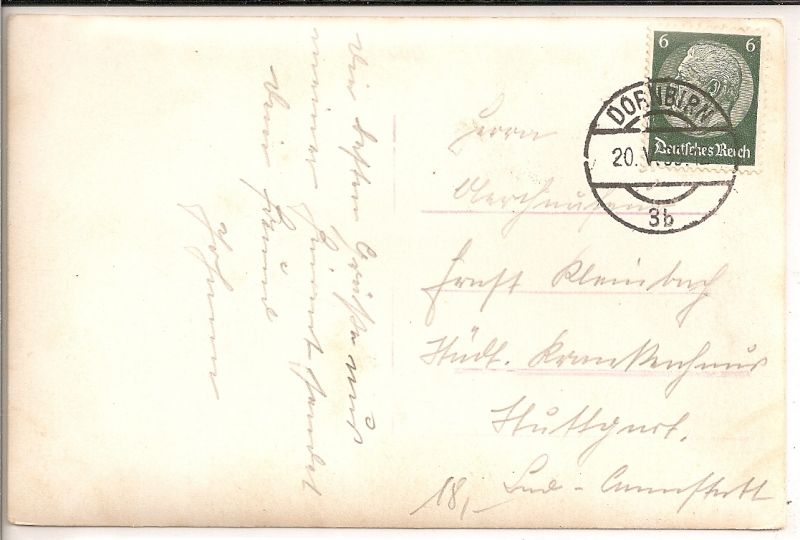 Die besten Grüße aus
meiner Heimat sendet
Dein Freund
Johann
6 6
Deutsches Reich
DORNBIRN
20. V.
3b
Herrn
Ernst Kleinbach
Städt. Krankenhaus
Stuttgart.
Bad - Cannstatt
18,-